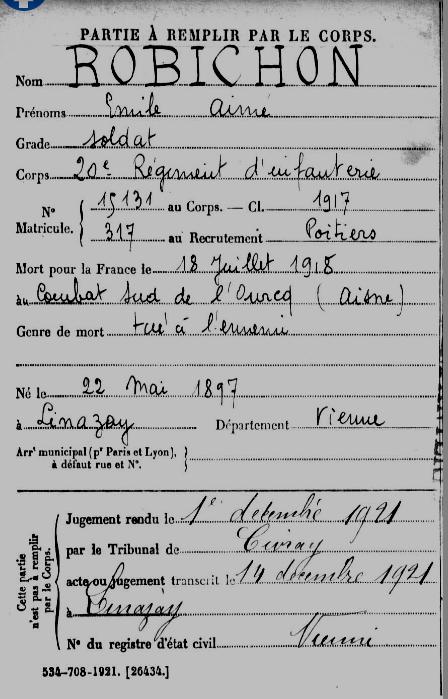 PARTIE À REMPLIR PAR LE CORPS.
Nom ROBICHON
Prénoms Emile Aimé
Grade soldat
Corps 20e Régiment d'infanterie
N° Matricule. { 15131 au Corps. — Cl. 1917
317 au Recrutement Poitiers
Mort pour la France le 18 Juillet 1918
au Combat Sud de l'Ourcq (Aisne)
Genre de mort tué à l'ennemi
Né le 22 Mai 1897
à Linazay Département Vienne
Arrt municipal (pr Paris et Lyon), }
à défaut rue et N°.
Cette partie n'est pas à remplir par le Corps.
Jugement rendu le 1er décembre 1921
par le Tribunal de Civray
acte ou jugement transcrit le 14 décembre 1921
à Linazay
N° du registre d'état civil Vienne
534-708-1921. [26434.]